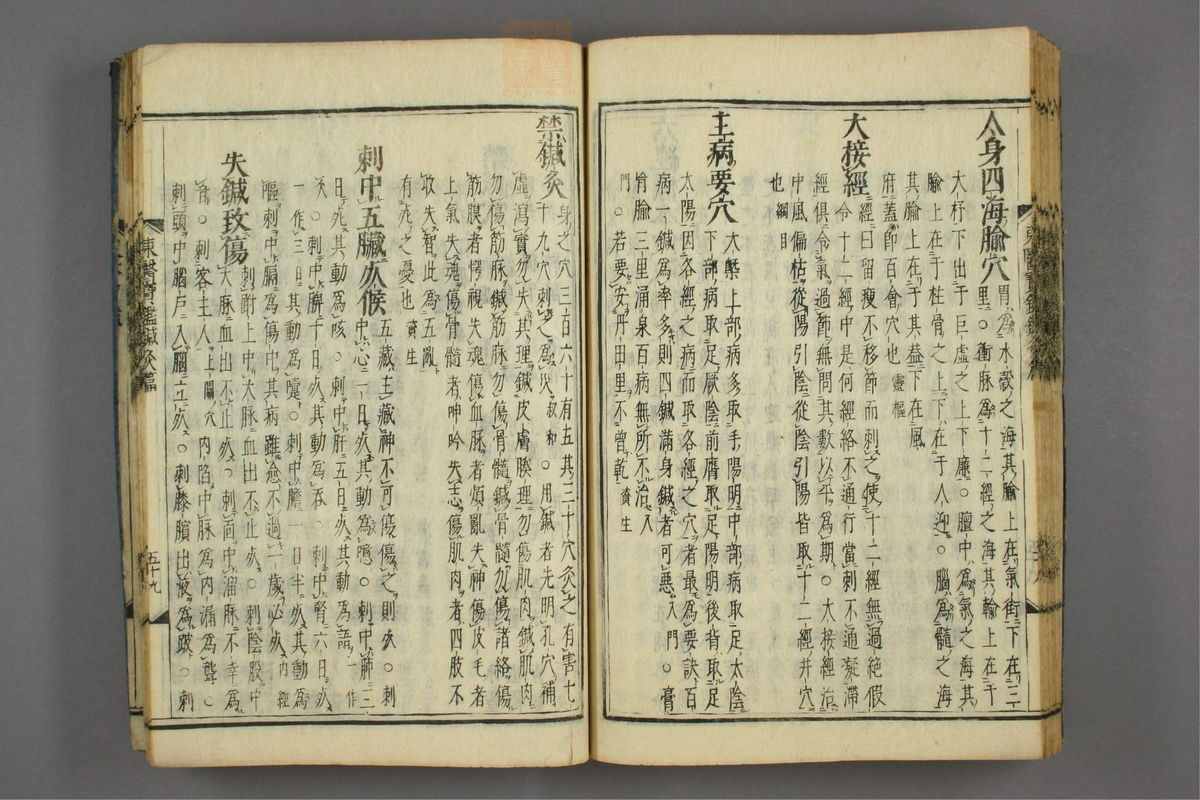 人身四海腧穴 胃爲水穀之海其腧上在氣街下在三
里○衝脉爲十二經之海其輸上在于
大杼下出于巨虛之上下廉○膻中爲氣之海其
腧上在于柱骨之上下在于人迎○腦爲髓之海
其腧上在于其盖下在風
府蓋卽百會穴也 靈樞
大接經 令十二經中是何經絡不通行當刺不通凝滯
經曰留瘦不移節而刺之使十二經無過絶假
經俱令氣過節無問其數以平爲期○大接經治
中風偏枯從陽引陰從陰引陽皆取十二經井穴
也 綱目
主病要穴 大槩上部病多取手陽明中部病取足太陰
下部病取足厥陰前膺取足陽明後背取足
太陽因各經之病而取各經之穴者最爲要訣百
病一鍼爲率多則四鍼滿身鍼者可惡入門○膏
肓腧三里涌泉百病無所不治入
門○若要安丹田三里不曾乾 資生
禁鍼灸 身之穴三百六十有五其三十穴灸之有害七
十九穴刺之爲災 叔和 ○用鍼者先明孔穴補
虛瀉實勿失其理鍼皮膚腠理勿傷肌肉鍼肌肉
勿傷筋脉鍼筋脉勿傷骨髓鍼骨髓勿傷諸絡傷
筋膜者愕視失魂傷血脉者煩亂失神傷皮毛者
上氣失魄傷骨髓者呻吟失志傷肌肉者四肢不
收失智此爲五亂
有死之憂也 資生
刺中五臟死候 五藏主藏神不可傷傷之則死○刺
中心一日死其動爲噫○刺中肺三
日死其動爲咳○刺中肝五日死其動爲語 一作
欠○刺中脾十日死其動爲呑○刺中腎六日死
一作三日其動爲嚔○刺中膽一日半死其動爲
嘔刺中膈爲傷中其病雖愈不過一歲必死 內經
失鍼致傷 刺跗上中大脉血出不止死○刺陰股中
大脉血出不止死○刺面中溜脉不幸爲
盲○刺客主人 上關穴 內陷中脉爲內漏爲聾○
刺頭中腦戶入腦立死○刺膝臏出液爲跛○刺
東醫寶鑑鍼灸篇
五十九